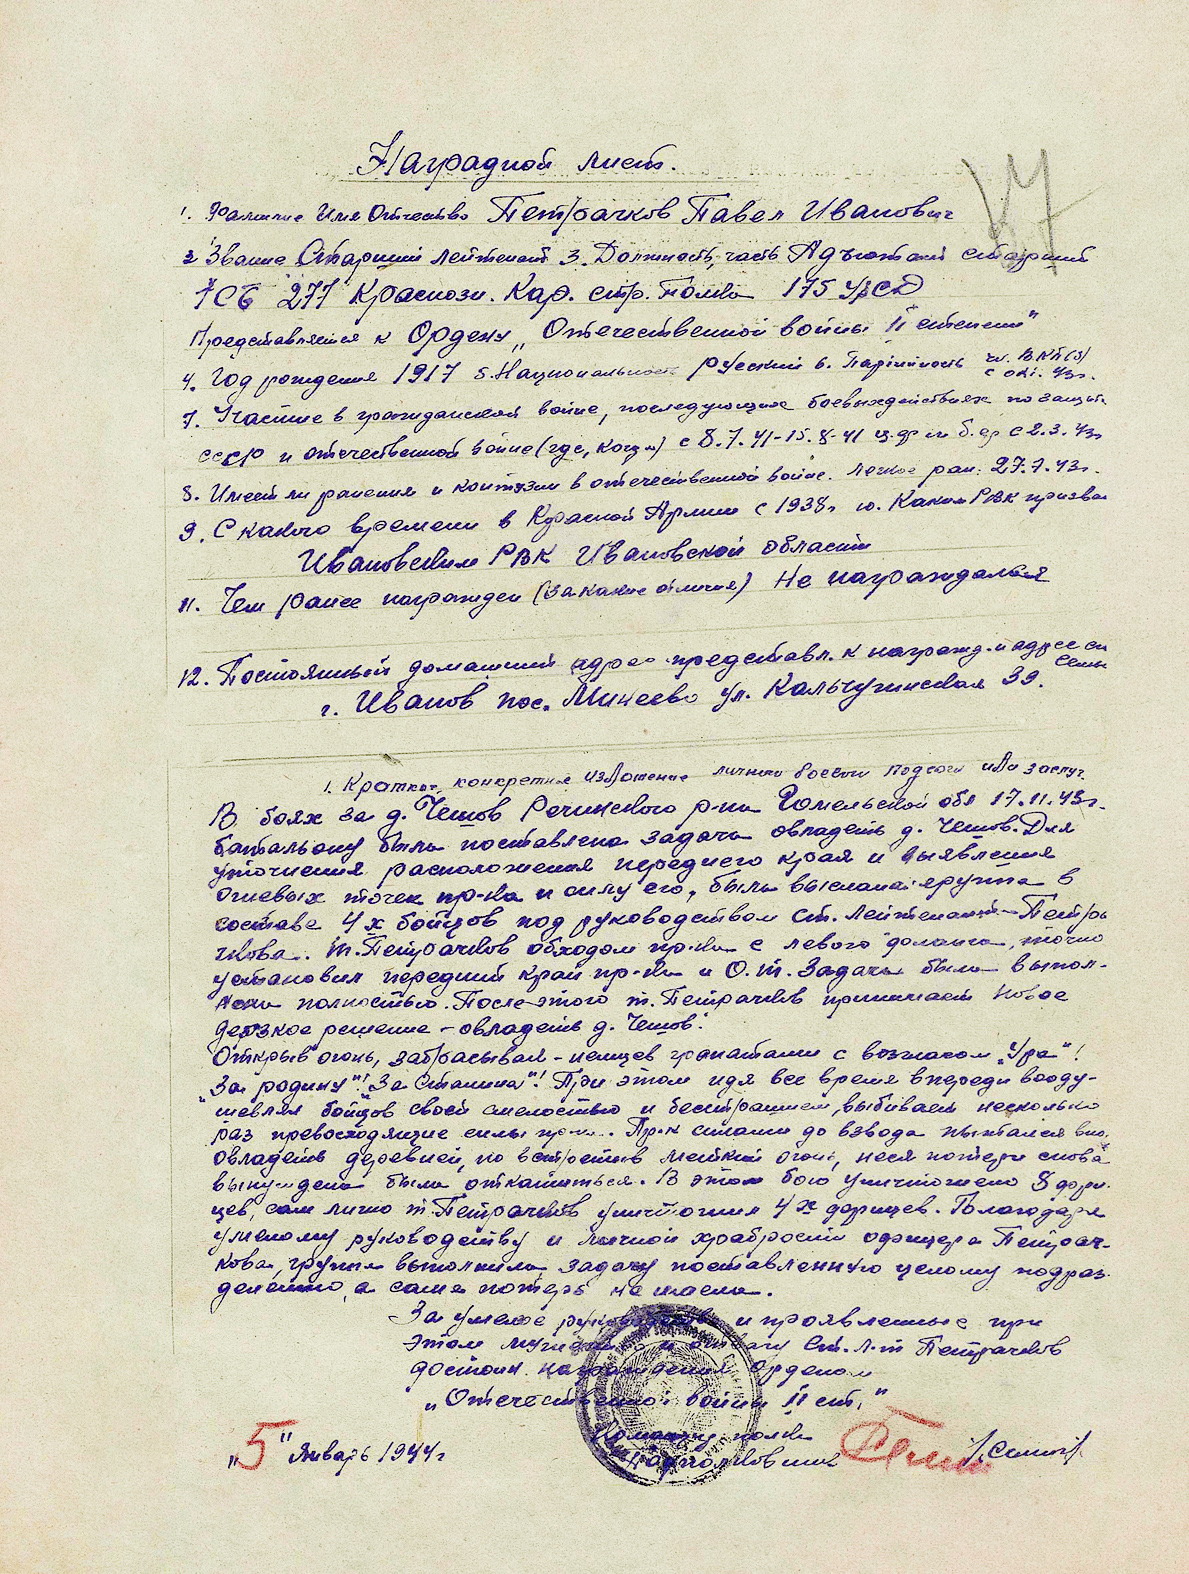 Наградной лист.
1. Фамилие Имя Отчество Петрачков Павел Иванович
2 Звание Старший лейтенант 3. Должность, часть Адъютант старший
1СБ 277 Краснозн. Кар. стр. полка 175 УрСД
Представляется к Ордену „Отечественной войны II степени"
4. Год рождения 1917 5. Национальность русский 6. Партийность чл. ВКП(б)
с окт. 43г.
7. Участие в гражданской войне, последующих боевых действиях по защите
СССР и отечественной войне (где, когда) с 8.7.41-15.8-41 с 2.3.43г
8. Имеет ли ранения и контузии в отечественной войне. Легкое ран. 27.7.43г.
9. С какого времени в Красной Армии с 1938г 10. Каким РВК призван
Ивановским РВК Ивановской области
11. Чем ранее награжден (за какие отличия) Не награждался
12. Постоянный домашний адрес представл. к награжд. и адрес его
семьи
г. Иванов пос. Минеево ул. Кальчугинская 39.
1. Краткое, конкретное изложение личного боевого подвига или заслуг.
В боях за д. Чешов Речинского р-на Гомельской обл 17.11.43г.
батальону была поставлена задача овладеть д. Чешов. Для
уточнения расположения переднего края и выявления
огневых точек пр-ка и силу его, была выслана группа в
составе 4х бойцов под руководством ст. лейтенанта Петра
чкова. т. Петрачков обходом пр-ка с левого фланга, точно
установил передний край пр-ка и О.т. Задача была выпол-
нена полностью. После этого т. Петрачков принимает новое
дерзкое решение - овладеть д. Чешов.
Открыв огонь, забрасывая - немцев гранатами с возгласом „Ура"!
„За родину"! „За Сталина"! При этом идя все время впереди вооду-
шевляя бойцов своей смелостью и бесстрашием, выбивает несколько
раз превосходящие силы пр-ка. Пр-к силами до взвода пытался
овладеть деревней, но встретив меткий огонь, неся потери снова
вынужден был откатиться. В этом бою уничтожено 8 фри-
цев, сам лично т. Петрачков уничтожил 4х фрицев. Благодаря
умелому руководству и личной храбрости офицера Петрач-
кова, группа выполнила задачу поставленную целому подраз.
делению, а сама потерь не имела.
За умелое руководство и проявленные при
этом мужество и отвагу Ст. л-т Петрачков
достоин награждения Орденом
„Отечественной войны II ст."
Командир полка
Подполковник
„5" Январь 1944г